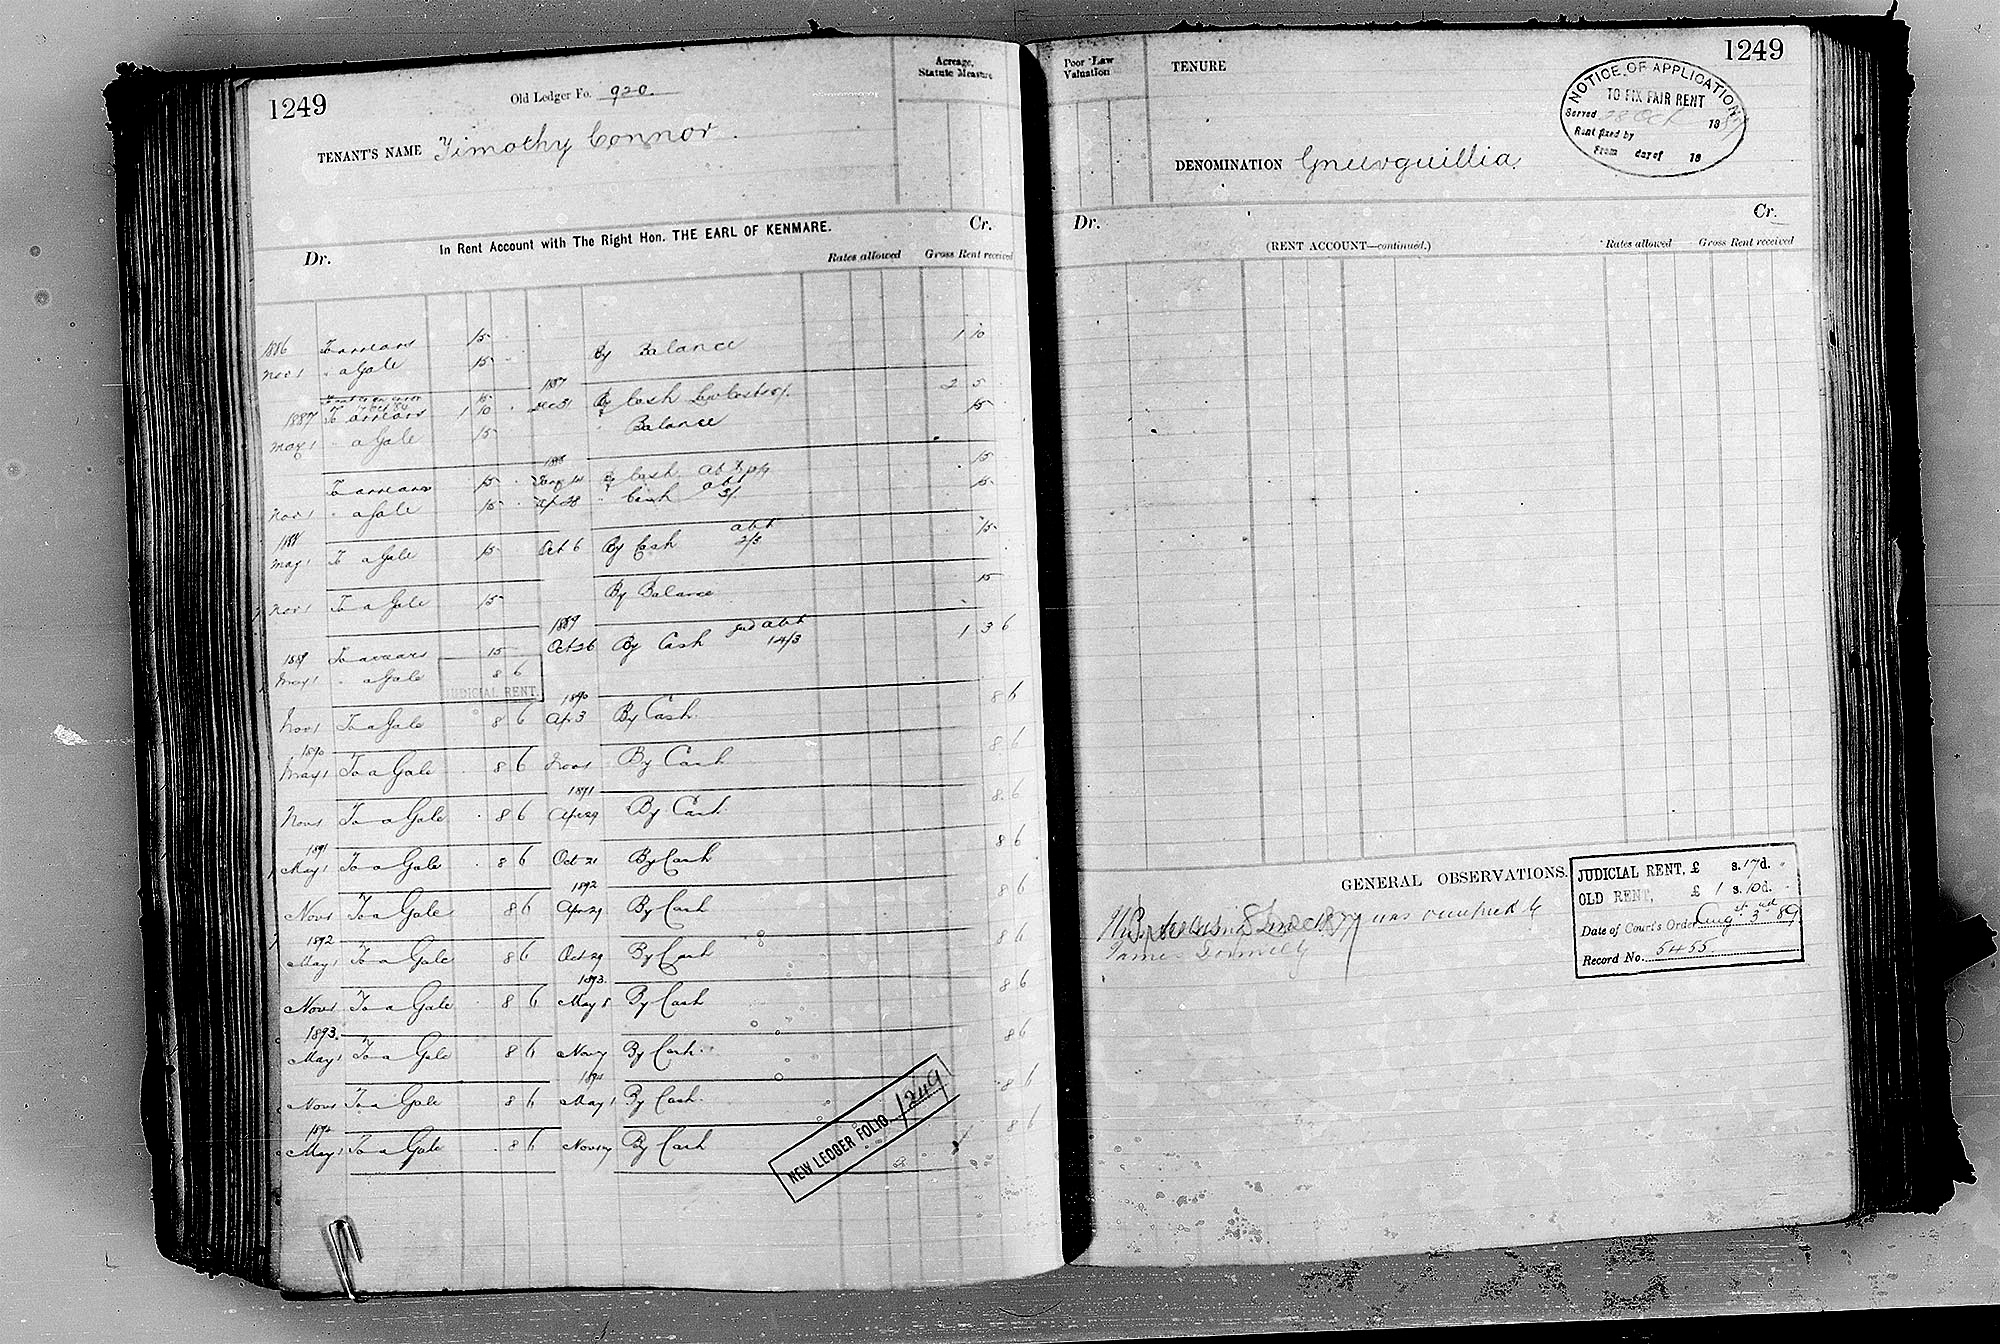 1249
Old Ledger Fo. 920.
Acreage, Statute Measure
TENANT'S NAME Timothy Connor.
In Rent Account with The Right Hon. THE EARL OF KENMARE.
Dr. Cr.
Rates allowed Gross Rent received
1886 To arrears 15 By Balance 1 10
Nov 1 " a Gale 15
15
1887 To arrears 1 10 1887 Dec 31 By Cash 2 5
May 1 " a Gale 15 " Balance 15
To arrears 15 1888 By Cash 15
Nov 1 " a Gale 15 Ap 28 " Cash abt 3/ 15
1888
May 1 To a Gale 15 Oct 6 By Cash abt 2/3 15
Nov 1 To a Gale 15 By Balance 15
1889 To arrears 15 1889 Oct 26 By Cash abt 14/3 1 3 6
May 1 " a Gale 8 6
JUDICIAL RENT.
Nov 1 To a Gale 8 6 1890 Ap 3 By Cash 8 6
1890
May 1 To a Gale 8 6 Nov 1 By Cash 8 6
Nov 1 To a Gale 8 6 1891 Apr 29 By Cash 8 6
1891
May 1 To a Gale 8 6 Oct 21 By Cash 8 6
Nov 1 To a Gale 8 6 1892 Apr 29 By Cash 8 6
1892
May 1 To a Gale 8 6 Oct 29 By Cash 8 6
Nov 1 To a Gale 8 6 1893 May 8 By Cash 8 6
1893.
May 1 To a Gale 8 6 Nov By Cash 8 6
Nov 1 To a Gale 8 6 1894 May 1 By Cash 8 6
1894
May 1 To a Gale 8 6 Nov By Cash 8 6
NEW LEDGER FOLIO 1249
Poor Law Valuation
TENURE
1249
NOTICE OF APPLICATION
TO FIX FAIR RENT
Served 28 Oct 1887
Rent fixed by
From day of 18
DENOMINATION Gneevguillia
Dr. Cr.
(RENT ACCOUNT—continued.)
Rates allowed Gross Rent received
GENERAL OBSERVATIONS.
was
James
JUDICIAL RENT, £ s. 17 d.
OLD RENT, £ 1 s. 10 d.
Date of Court's Order Aug 3rd 89
Record No. 5455